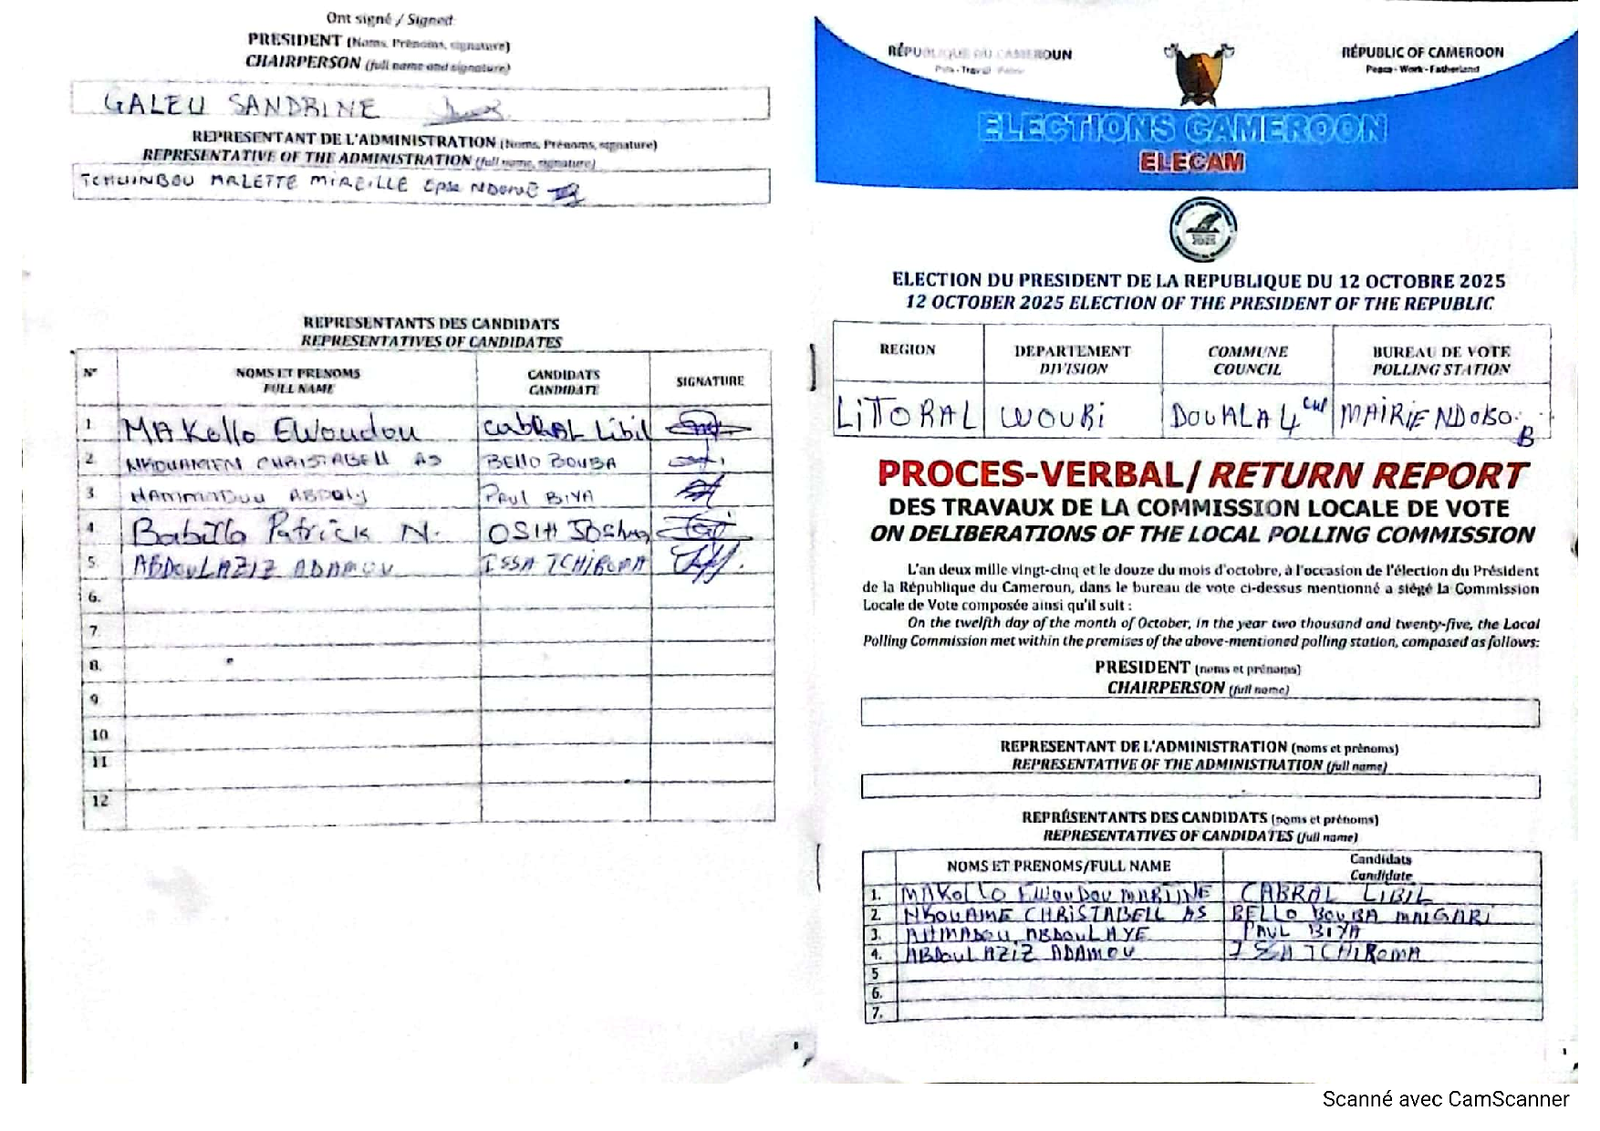 Ont signé / Signed
PRESIDENT (Noms, Prénoms, signature)
CHAIRPERSON (full name and signature)
GALEU SANDRINE
REPRESENTANT DE L'ADMINISTRATION (Noms, Prénoms, signature)
REPRESENTATIVE OF THE ADMINISTRATION (full name, signature)
TCHUINBOU ARLETTE MIREILLE Epse
REPRESENTANTS DES CANDIDATS
REPRESENTATIVES OF CANDIDATES
N° NOMS ET PRENOMS CANDIDATS SIGNATURE
FULL NAME CANDIDATE
1 MAKollo EWoudou CabRAL Libil
2 CHRISTABELL AS BELLO BOUBA
3 HAMMADOU ABDOUL PAUL BIYA
4. Babilla Patrick N. OSIH Joshua
5. ABDOULAZIZ ADAMOU ISSA TCHIROMA
6.
7.
8.
9
10
11
12
8
RÉPUBLIQUE DU CAMEROUN
Paix - Travail - Patrie
RÉPUBLIC OF CAMEROON
Peace - Work - Fatherland
ELECTIONS CAMEROON
ELECAM
2025
ELECTION DU PRESIDENT DE LA REPUBLIQUE DU 12 OCTOBRE 2025
12 OCTOBER 2025 ELECTION OF THE PRESIDENT OF THE REPUBLIC
REGION DEPARTEMENT COMMUNE BUREAU DE VOTE
DIVISION COUNCIL POLLING STATION
LITTORAL WOURI DOUALA 4 MAIRIE NDOBO
B
PROCES-VERBAL/ RETURN REPORT
DES TRAVAUX DE LA COMMISSION LOCALE DE VOTE
ON DELIBERATIONS OF THE LOCAL POLLING COMMISSION
L'an deux mille vingt-cinq et le douze du mois d'octobre, à l'occasion de l'élection du Président
de la République du Cameroun, dans le bureau de vote ci-dessus mentionné a siégé la Commission
Locale de Vote composée ainsi qu'il suit :
On the twelfth day of the month of October, in the year two thousand and twenty-five, the Local
Polling Commission met within the premises of the above-mentioned polling station, composed as follows:
PRESIDENT (noms et prénoms)
CHAIRPERSON (full name)
REPRESENTANT DE L'ADMINISTRATION (noms et prénoms)
REPRESENTATIVE OF THE ADMINISTRATION (full name)
REPRÉSENTANTS DES CANDIDATS (noms et prénoms)
REPRESENTATIVES OF CANDIDATES (full name)
NOMS ET PRENOMS/FULL NAME Candidats
Candidate
1. MAKOLLO EWOUDOU MARTINE CABRAL LIBIL
2. NKOUAME CHRISTABELL AS BELLO BOUBA MAIGARI
3. AHMADOU ABDOULAYE PAUL BIYA
4. ABDOULAZIZ ADAMOU TCHIROMA
5
6.
7.
1
Scanné avec CamScanner